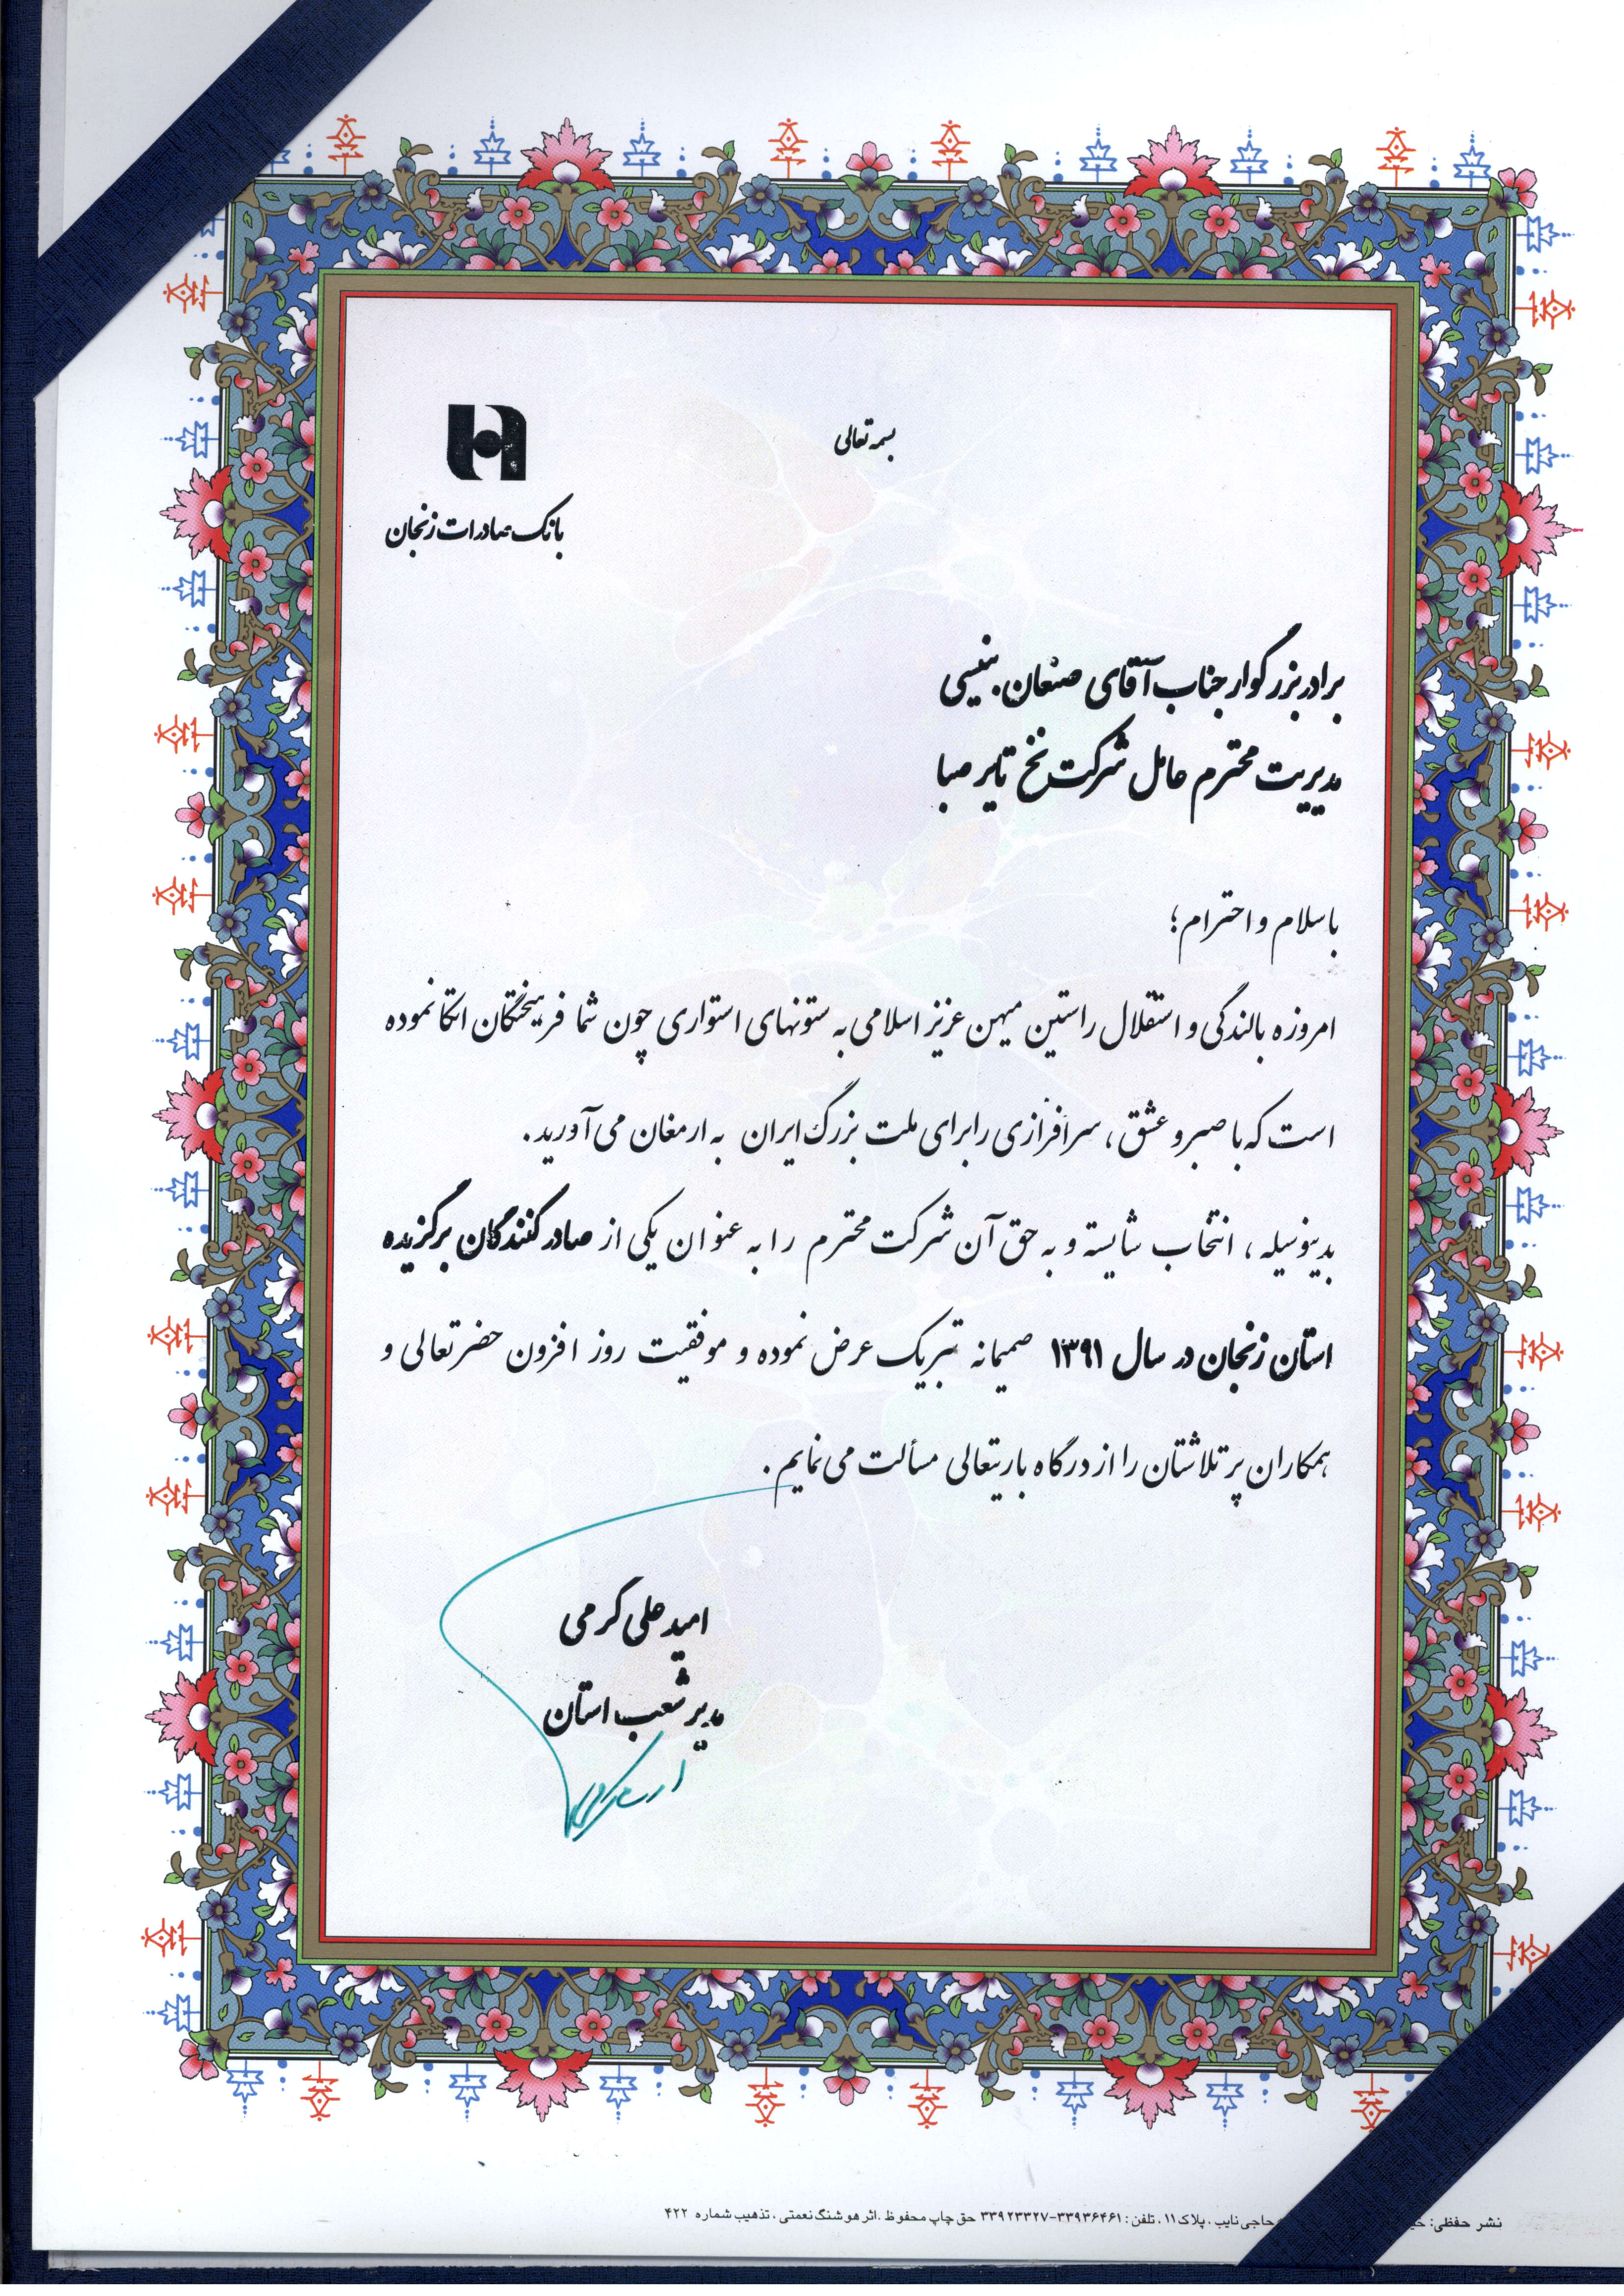 بسمه تعالی
بانک صادرات زنجان
برادر بزرگوار جناب آقای صنعان نفیسی
مدیریت محترم عامل شرکت نخ تایر صبا
با سلام و احترام؛
امروزه بالندگی و استقلال راستین میهن عزیز اسلامی به ستونهای استواری چون شما فرهیختگان اتکا نموده
است که با صبر و عشق، سرافرازی را برای ملت بزرگ ایران به ارمغان می‌آورید.
بدینوسیله، انتخاب شایسته و به حق آن شرکت محترم را به عنوان یکی از صادر کنندگان برگزیده
استان زنجان در سال ۱۳۹۱ صمیمانه تبریک عرض نموده و موفقیت روز افزون حضرتعالی و
همکاران پر تلاشتان را از درگاه باریتعالی مسألت می‌نمایم.
امید علی کرمی
مدیر شعب استان
نشر حفظی: حاجی نایب، پلاک ۱۱، تلفن: ۳۳۹۳۶۴۶۱-۳۳۹۲۳۳۲۷ حق چاپ محفوظ. اثر هوشنگ نعمتی، تذهیب شماره ۴۲۲